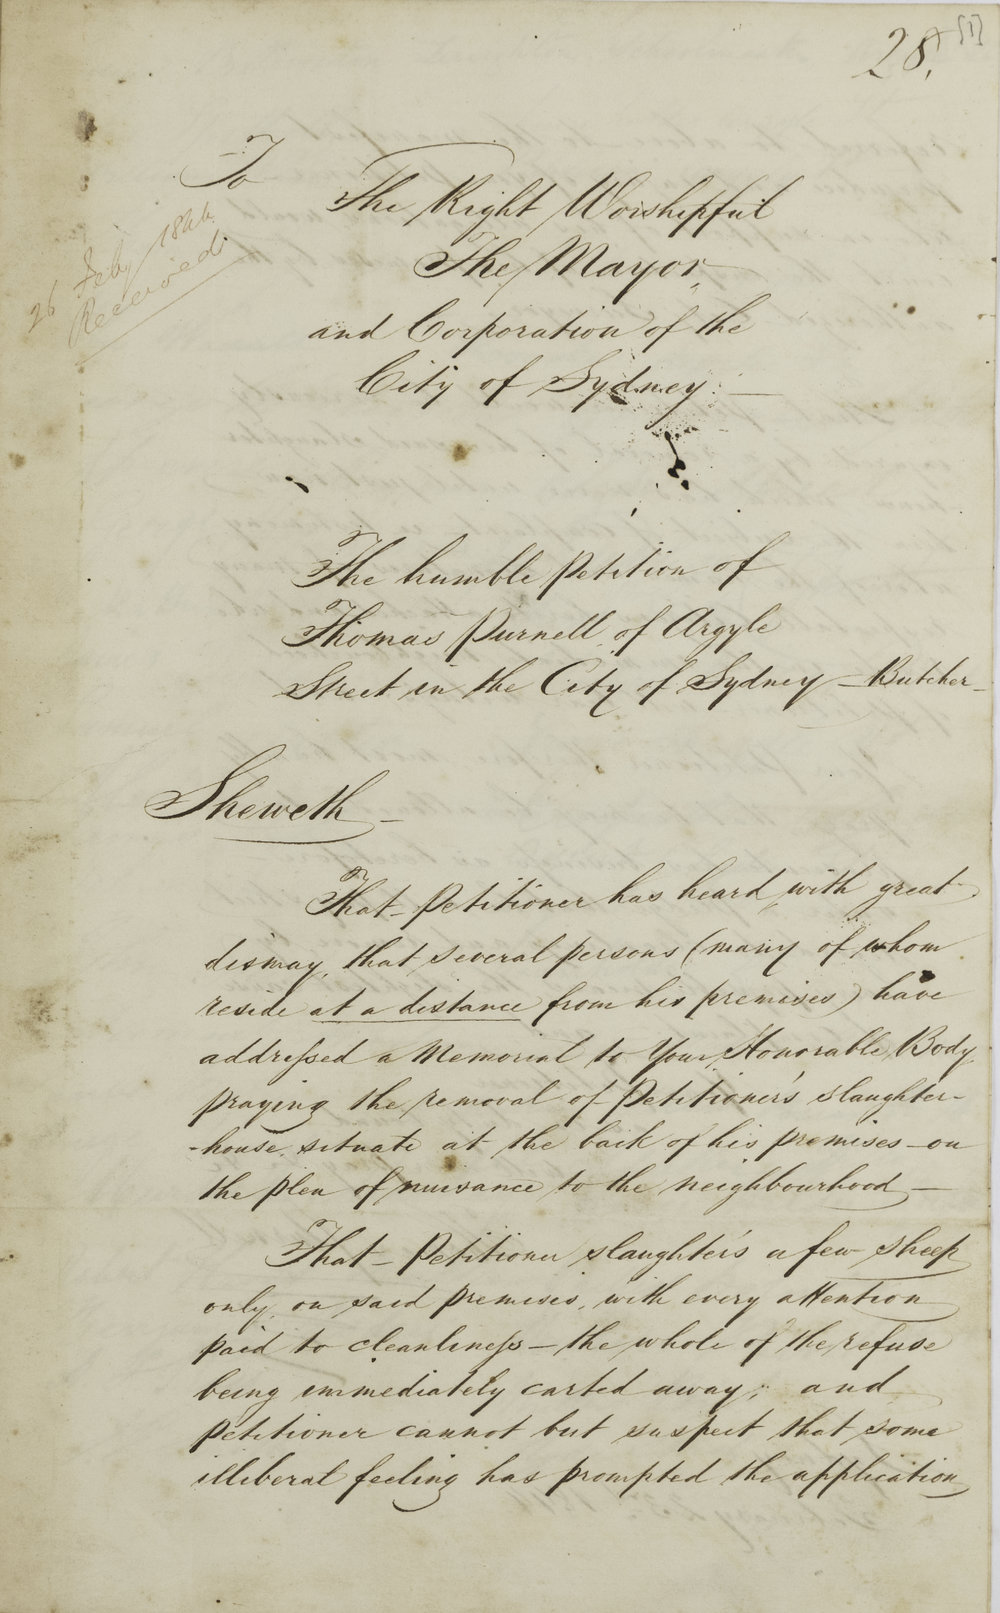 28. [1]
To
The Right Worshipful
The Mayor
and Corporation of the
City of Sydney
26 Feby 1844
Received
The humble petition of
Thomas Purnell of Argyle
Street in the City of Sydney – Butcher –
Sheweth –
That – Petitioner has heard, with great
dismay, that several persons (many of whom
reside at a distance from his premises) have
addressed a Memorial to Your Honorable Body
praying the removal of Petitioner's slaughter-
-house, situate at the back of his premises – on
the plea of nuisance to the neighbourhood –
That – Petitioner slaughters a few sheep
only, on said premises, with every attention
paid to cleanliness – the whole of the refuse
being immediately carted away; and
petitioner cannot but suspect that some
illiberal feeling has prompted the application